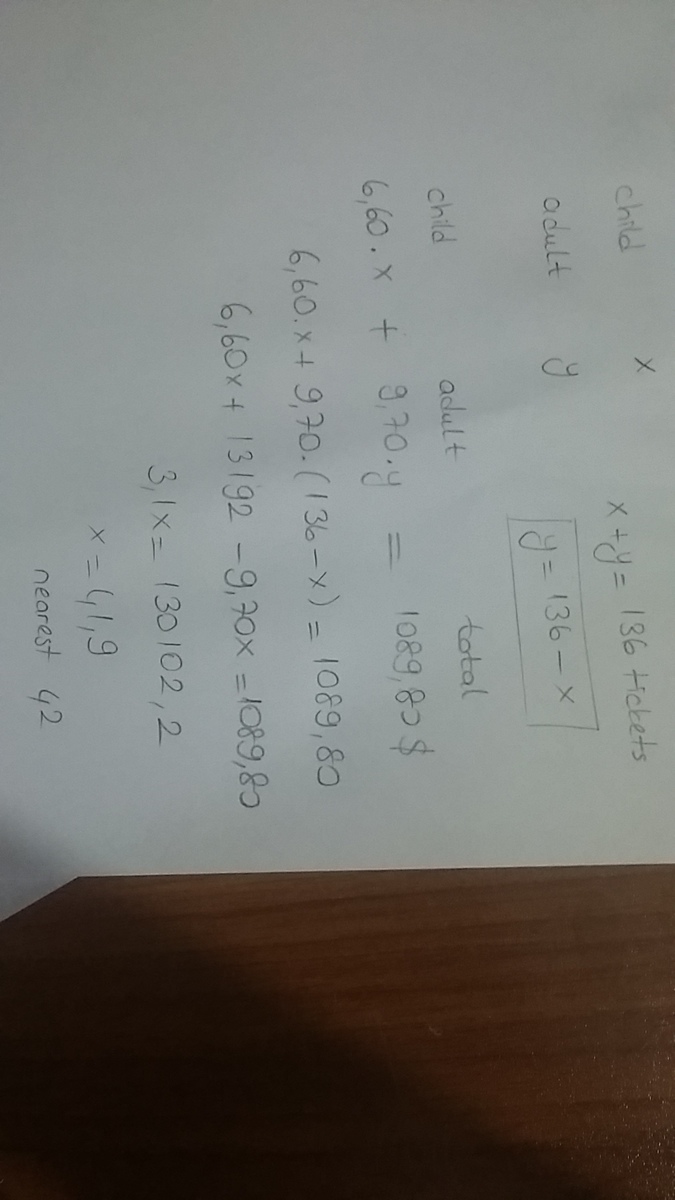 child x x+y = 136 tickets
adult y y = 136 - x
child adult total
6,60.x + 9,70.y = 1089,80 $
6,60.x + 9,70.(136-x) = 1089,80
6,60x + 13192 - 9,70x = 1089,80
3,1x = 130102,2
x = 41,9
nearest 42